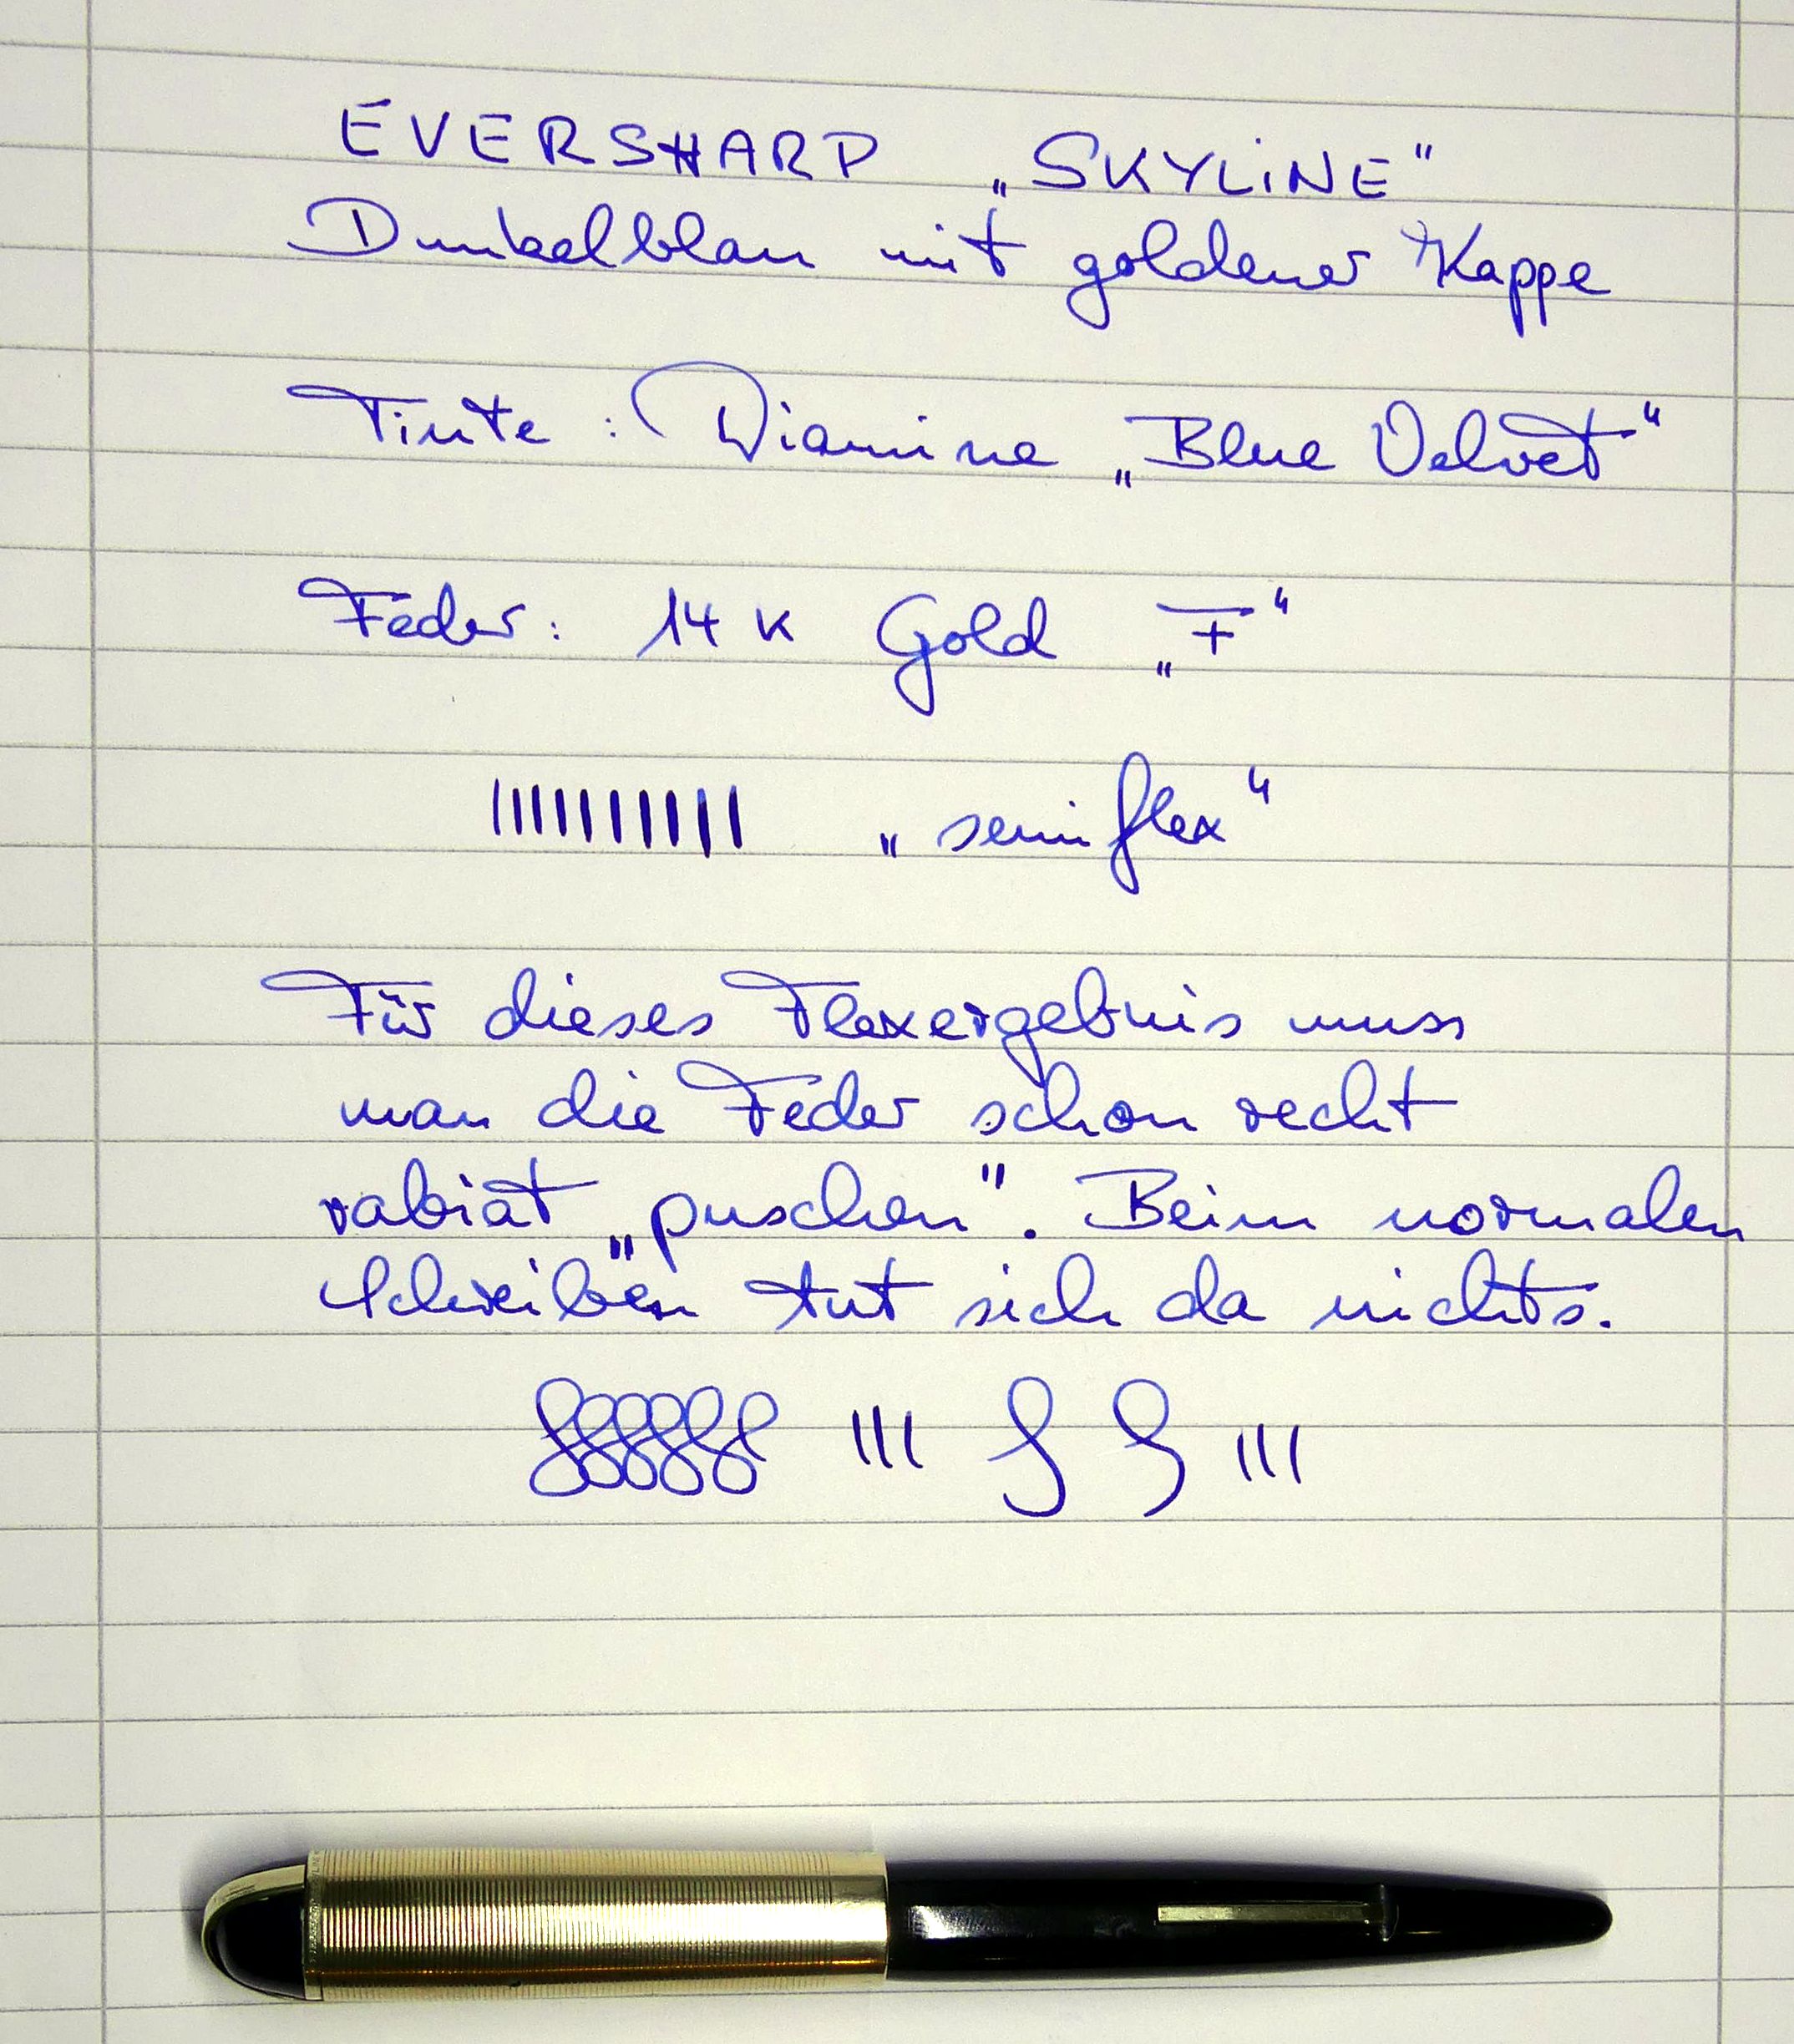 EVERSHARP „SKYLINE“
Dunkelblau mit goldener Kappe
Tinte : Diamine „Blue Velvet“
Feder: 14 K Gold „F“
„semiflex“
Für dieses Flexergebnis muss
man die Feder schon recht
rabiat „puschen“. Beim normalen
Schreiben tut sich da nichts.